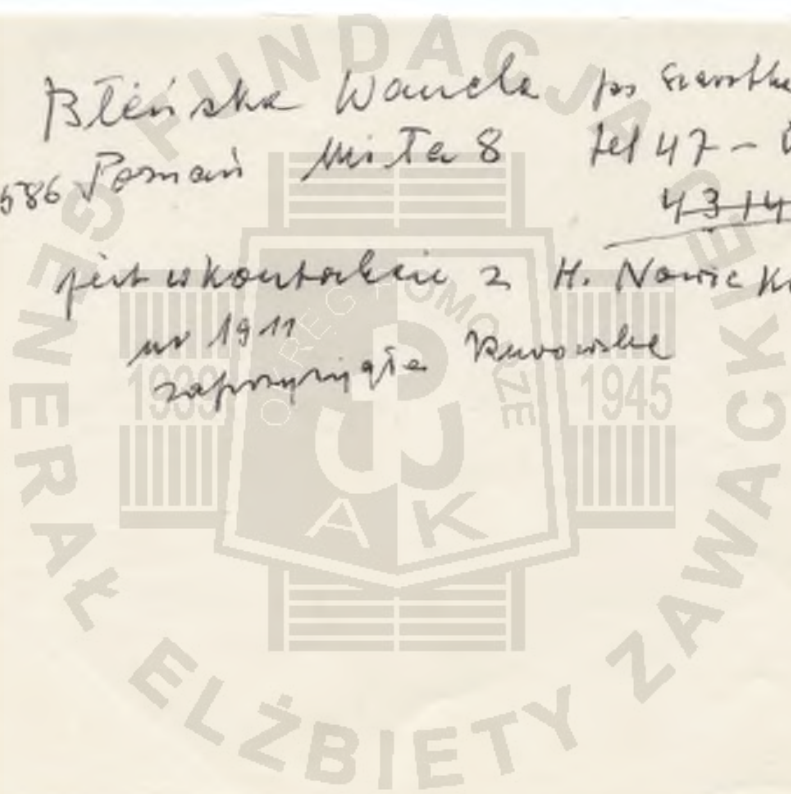 Błeńska Wanda ps Szarotka
586 Poznań Miła 8 tel 47 -
4314
jest w kontakcie z H. Nowick
ur 1911
zaprzysięgła
FUNDACJA
GENERAŁ ELŻBIETY ZAWACKIEJ
OKRĘG POMORZE
1939 1945
AK